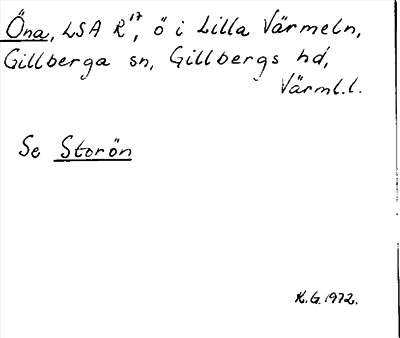 Öna, LSA R¹⁷, ö i Lilla Värmeln,
Gillberga sn, Gillbergs hd,
Värml.l.
Se Storön
K.G. 1972.